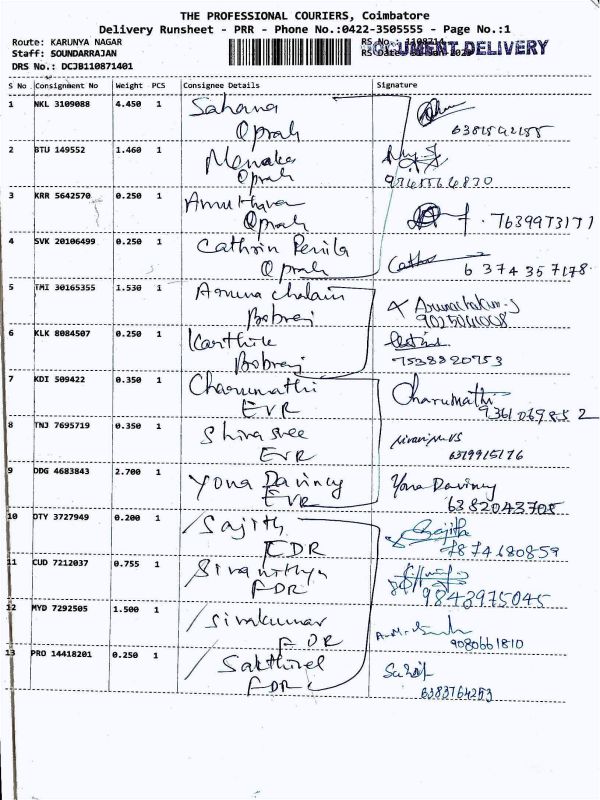 THE PROFESSIONAL COURIERS, Coimbatore
Delivery Runsheet - PRR - Phone No.:0422-3505555 - Page No.:1
Route: KARUNYA NAGAR RS No.: 1108714
DOCUMENT DELIVERY
Staff: SOUNDARRAJAN RS Date:
DRS No.: DCJB110871401
S No. Consignment No Weight PCS Consignee Details Signature
1 NKL 3109088 4.450 1 Sahana
Oprah
2 BTU 149552 1.460 1 Menaka
Oprah
3 KRR 5642570 0.250 1 Amuthava
Oprah 7639973171
4 SVK 20106499 0.250 1 Cathrin Penila
Oprah 6374357178
5 TMI 30165355 1.530 1 Arunachalam Arunachalam.J
Bobraj 9025041008
6 KLK 8084507 0.250 1 Karthik
Bobraj 7538820753
7 KDI 509422 0.350 1 Charumathi Charumathi
EVR 9361069852
8 TNJ 7695719 0.350 1 Shivasree
EVR
9 DDG 4683843 2.700 1 Yona Davincy Yona Davincy
EVR 6382043705
10 OTY 3727949 0.200 1 Sajith Sajith
FDR 7874680859
11 CUD 7212037 0.755 1
FDR 9843975045
12 MYD 7292505 1.500 1 Sivakumar
FDR 9080661810
13 PRO 14418201 0.250 1 Sakthivel
FDR 6383764253